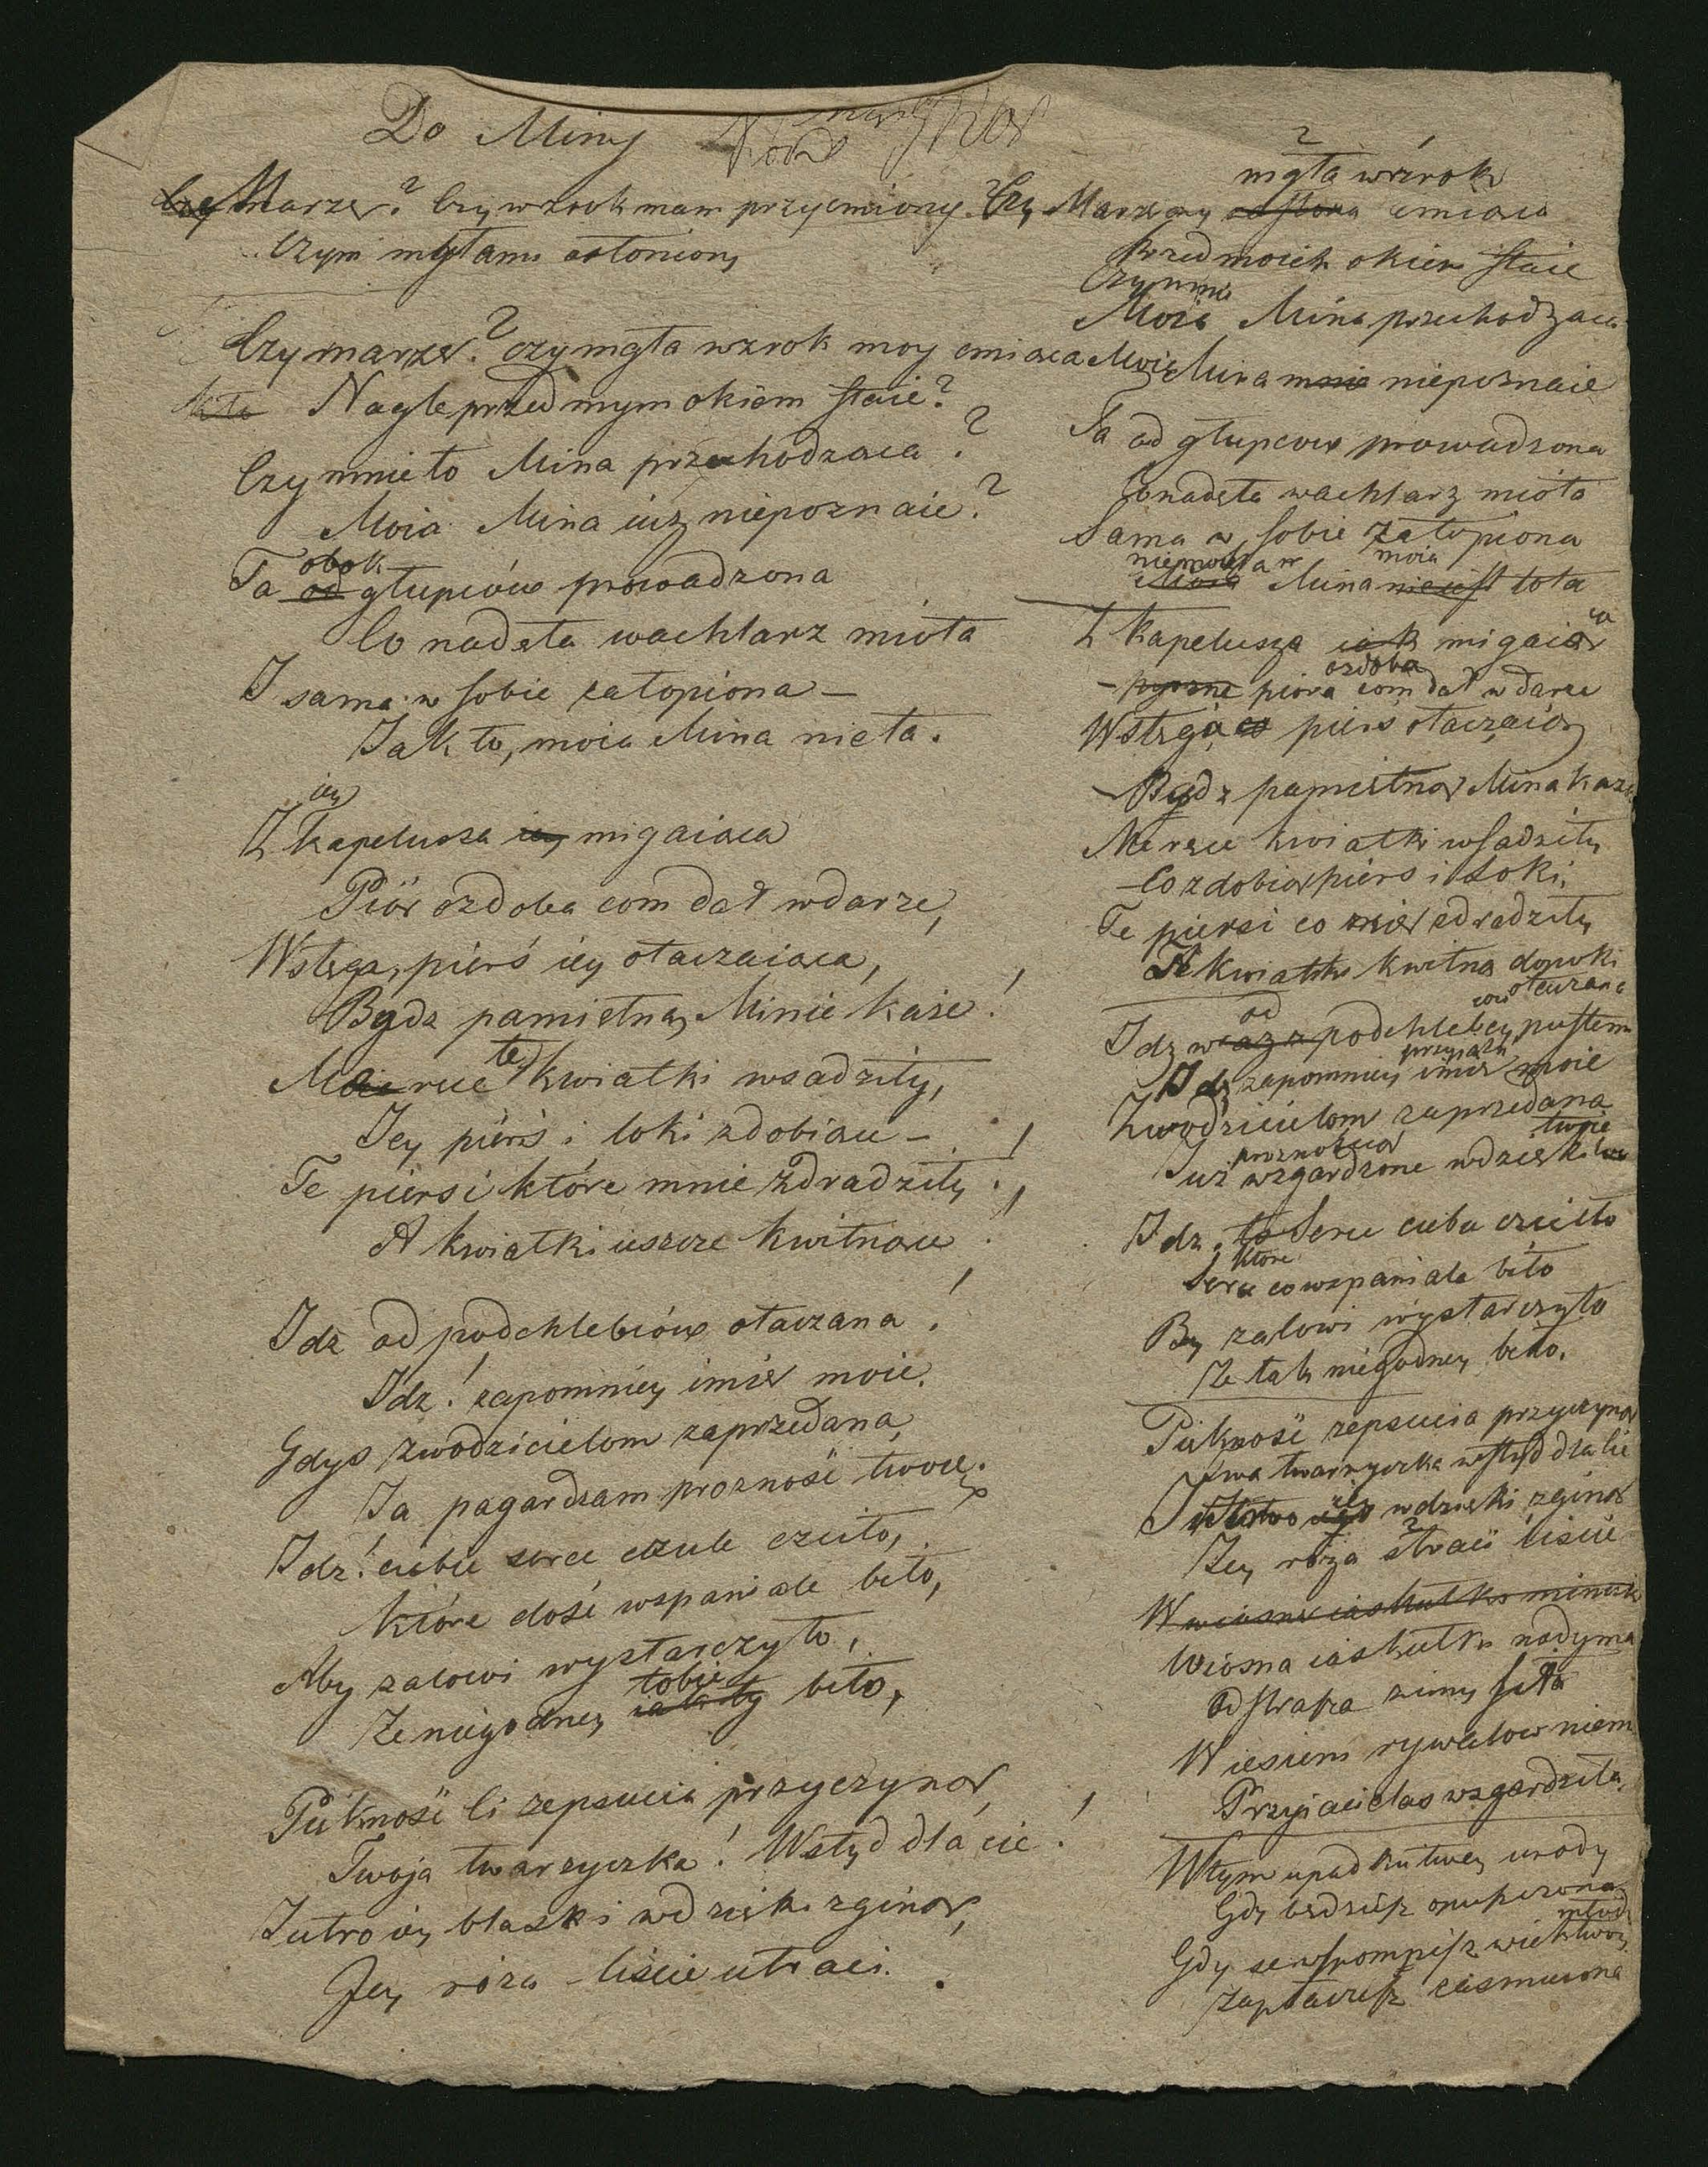 Do Miny
Marzę? Czy wzrok mam przycmiony?
Czym mgłami osłoniony
Czy marzę? czy mgła wzrok moy cmiąca
Nagle przed mym okiem staie?
Czy mnie to Mina przechodząca?
Moia Mina iuż niepoznaie?
obok
Ta od głupców prowadzona
Co nadęta wachlarz miota
I sama w sobie zatopiona –
Jak to, moia Mina nie ta.
iey
Z kapelusza iey migaiąca
Piór ozdoba com dał w darze,
Wstęga, pierś iey otaczaiąca,
Bydz pamiętną Minie każe!
te
Moie ręce kwiatki wsadziły,
Jey pierś i loki zdobiące –
Te piersi które mnie zdradziły!
A kwiatki ieszcze kwitnące!
Idz od podchlebców otaczana!
Idz! zapomniey imie moie.
Gdys zwodzicielom zaprzedana,
Ja pogardzam prozność twoię.
Idz! ciebie serce czule czciło,
Które dość wspaniale biło,
Aby żalowi wystarczyło,
tobie
Ze niegodney iak ty biło,
Piękność li zepsucia przyczyną,
Twoja twarzyczka! Wstyd dla cie!
Jutro iey blask i wdzięki zginą,
Jey róża – liście utraci.
mgła wzrok
Czy Marzę czy osłona cmiąca
Przed moich okiem staie
Czy mnie
Moia Mina przechodząca
Moia Mina mnie niepoznaie
Ta od głupców prowadzona
Co nadęta wachlarz miota
Sama w sobie zatopiona
moia
Moia Mina nie iest tota
Z kapelusza iak migaiąca
ozdoba
pyszne pióra com dał w darze
Wstęga co pierś otaczaią
Bydz pamiętną Mina każe
Me ręce kwiatki wsadziły
Co zdobią pierś i loki;
Te piersi co mię zdradziły
Te kwiatki kwitną dopoki
od otaczana
Idz wraz z podchlebcy pustemi
przyiazń
Idz zapomniey imie moie
Zwodzicielom zaprzedana
proznością twoie
Już wzgardzone wdzięki
Idz, to Serce ciebie czciło
które
Serce co wspaniale biło
By żalowi wystarczyło
Ze tak niegodney biło.
Piękność zepsucia przyczyną
Twa twarzyczka wstyd dla cie
Jutro iey wdzięki zginą
Jey róża straci liście
W wiosnę iaskułka
Wiosna iaskułka nadyma
Odstrasza zimy siła
W iesieni rywalow niema
Przyiaciela wzgardziła.
W tym upadku twey urody
Gdy będziesz opuszczona
młody
Gdy se wspomnisz wiek twoy
Zapłaczesz zasmucona